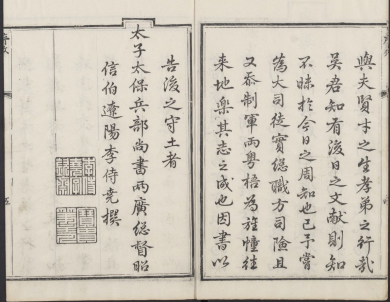 與夫賢士之生孝弟之行哉
吳君知有後日之文獻則知
不昧於今日之周知也已予嘗
蒞大司徒實總職方司險且
又忝制軍兩粵梧為旌幢往
来地樂其志之成也因書以
告後之守土者
太子太保兵部尚書兩廣總督昭
信伯遼陽李侍堯撰